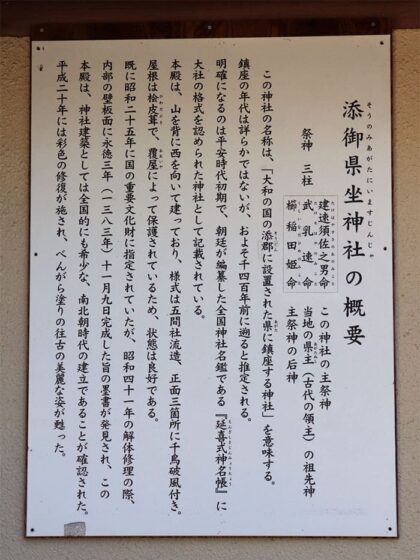 そうのみあがたにいますじんじゃ
添御県坐神社の概要
祭神　三柱
建速須佐之男命　この神社の主祭神
武乳速命　当地の県主（古代の領主）の祖先神
櫛稲田姫命　主祭神の后神
この神社の名称は、「大和の国の添郡に設置された県に鎮座する神社」を意味する。
鎮座の年代は詳らかではないが、およそ千四百年前に遡ると推定される。
明確になるのは平安時代初期で、朝廷が編纂した全国神社名鑑である『延喜式神名帳』に
大社の格式を認められた神社として記載されている。
本殿は、山を背に西を向いて建っており、様式は五間社流造、正面三箇所に千鳥破風付き。
屋根は桧皮葺で、覆屋によって保護されているため、状態は良好である。
既に昭和二十五年に国の重要文化財に指定されていたが、昭和四十一年の解体修理の際、
内部の壁板面に永徳三年（一三八三年）十一月九日完成した旨の墨書が発見され、この
本殿は、神社建築としては全国的にも希少な、南北朝時代の建立であることが確認された。
平成二十年には彩色の修復が施され、べんがら塗りの往古の美麗な姿が甦った。